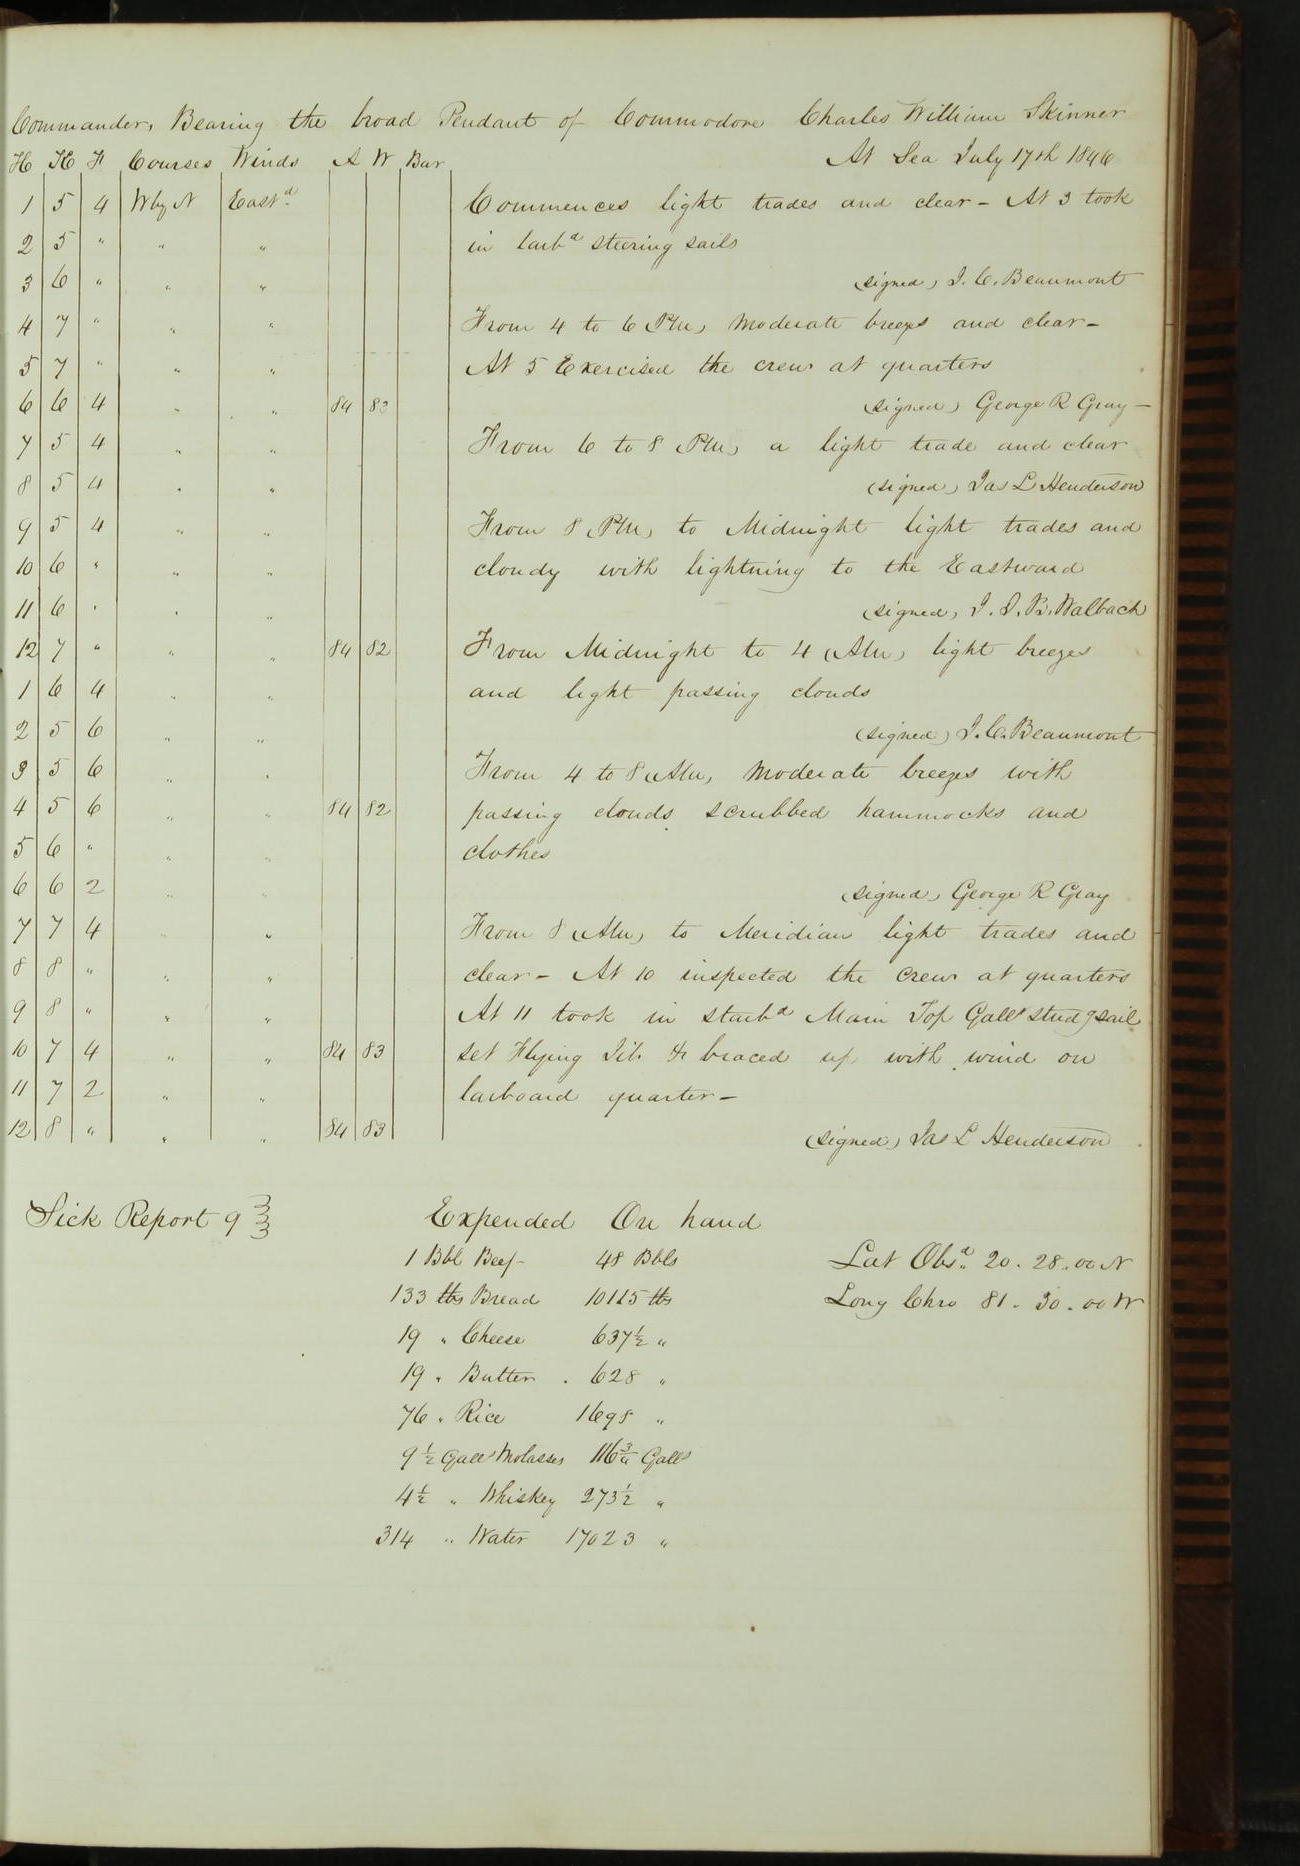 Commander, Bearing the broad Pendant of Commodore Charles William Skinner
H K F Courses Winds A W Bar At Sea July 17th 1846
1 5 4 W by N East^d. Commences light trades and clear - At 3 took
2 5 " " " in larb^d steering sails
3 6 " " " (signed) J. C. Beaumont
4 7 " " " From 4 to 6 PM, Moderate breezes and clear -
5 7 " " " At 5 Exercised the crew at quarters
6 6 4 " " 84 83 (signed) George R Gray -
7 5 4 " " From 6 to 8 PM, a light trade and clear
8 5 4 " " (signed) Jas L Henderson
9 5 4 " " From 8 PM, to Midnight light trades and
10 6 " " " cloudy with lightning to the Eastward
11 6 " " " (signed, J. J. B. Walbach
12 7 " " " 84 82 From Midnight to 4 AM, light breezes
1 6 4 " " and light passing clouds
2 5 6 " " (signed) J. C. Beaumont
3 5 6 " " From 4 to 8 AM, Moderate breezes with
4 5 6 " " 84 82 passing clouds scrubbed hammocks and
5 6 " " " clothes
6 6 2 " " (signed, George R Gray
7 7 4 " " From 8 AM, to Meridian light trades and
8 8 " " " clear - At 10 inspected the crew at quarters
9 8 " " " At 11 took in starb^d Main Top Gall^t studg sail
10 7 4 " " 84 83 set Flying Jib & braced up with wind on
11 7 2 " " larboard quarter -
12 8 " " " 84 83 (signed) Jas L Henderson
Sick Report 9 Expended On hand
1 Bbl Beef 48 Bbls Lat Obs^d. 20. 28. 00 N
133 lbs Bread 10115 lbs Long Chro 81. 30. 00 W
19 " Cheese 637½ "
19 " Butter . 628 "
76 " Rice 1698 "
9½ Galls Molasses 116¾ Galls
4½ " Whiskey 273½ "
314 " Water 17023 "